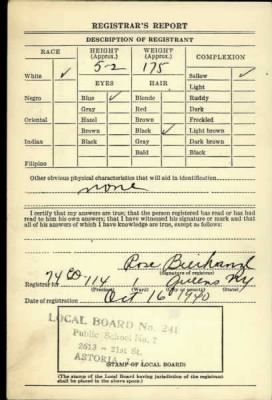 REGISTRAR'S REPORT
DESCRIPTION OF REGISTRANT
RACE HEIGHT (Approx.) WEIGHT (Approx.) COMPLEXION
White ✓ 5-2 175 Sallow ✓
EYES HAIR Light
Negro Blue ✓ Blonde Ruddy
Gray Red Dark
Oriental Hazel Brown Freckled
Brown Black ✓ Light brown
Indian Black Gray Dark brown
Bald Black
Filipino
Other obvious physical characteristics that will aid in identification
none
I certify that my answers are true; that the person registered has read or has had
read to him his own answers; that I have witnessed his signature or mark and that
all of his answers of which I have knowledge are true, except as follows:
Rose
(Signature of registrar)
Registrar for 114 Queens NY
(Precinct) (Ward) (City or county) (State)
Date of registration Oct 16 1940
LOCAL BOARD No. 241
Public School No. 7
2613 - 21st St.
ASTORIA
(STAMP OF LOCAL BOARD)
(The stamp of the Local Board having jurisdiction of the registrant
shall be placed in the above space.)